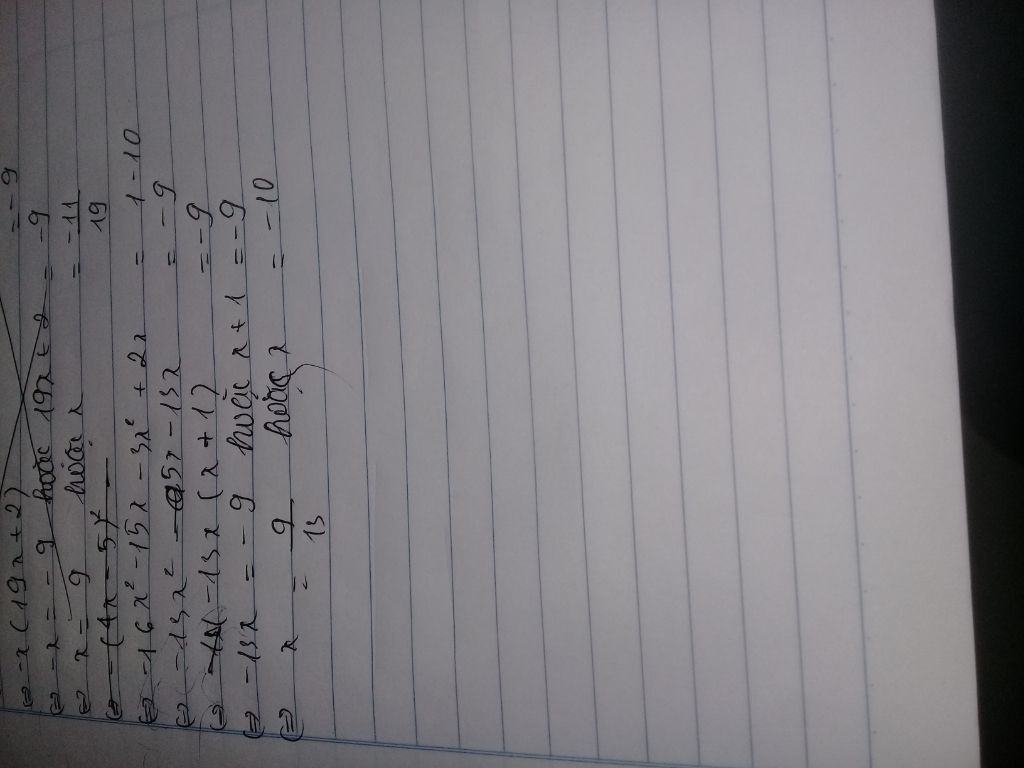 ⇔ -x (19x + 2) = -9
⇔ -x = -9 hoặc 19x + 2 = -9
⇔ x = 9 hoặc x = -11/19
⇔ -(4x - 5)²
⇔ -16x² - 15x - 3x² + 2x = 1 - 10
⇔ -13x² - 15x - 13x = -9
⇔ -13x (x + 1) = -9
⇔ -13x = -9 hoặc x + 1 = -9
⇔ x = 9/13 hoặc x = -10